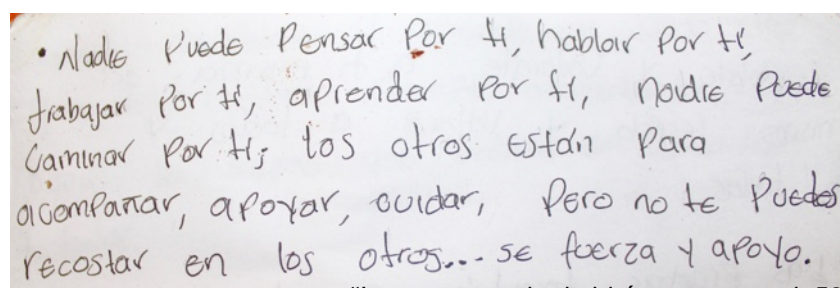 • Nadie Puede Pensar Por ti, hablar Por ti,
trabajar Por ti, aprender Por ti, nadie Puede
Caminar Por ti; los otros están Para
acompañar, apoyar, cuidar, Pero no te Puedes
recostar en los otros... se fuerza y apoyo.